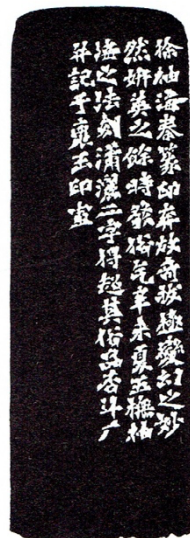 徐袖海篆印奔放奇拔極變幻之妙
然妍美之餘時露俗气辛未夏五橅袖
海之法刻瀟灑二字得超其俗否斗厂
并記于褱玉印室